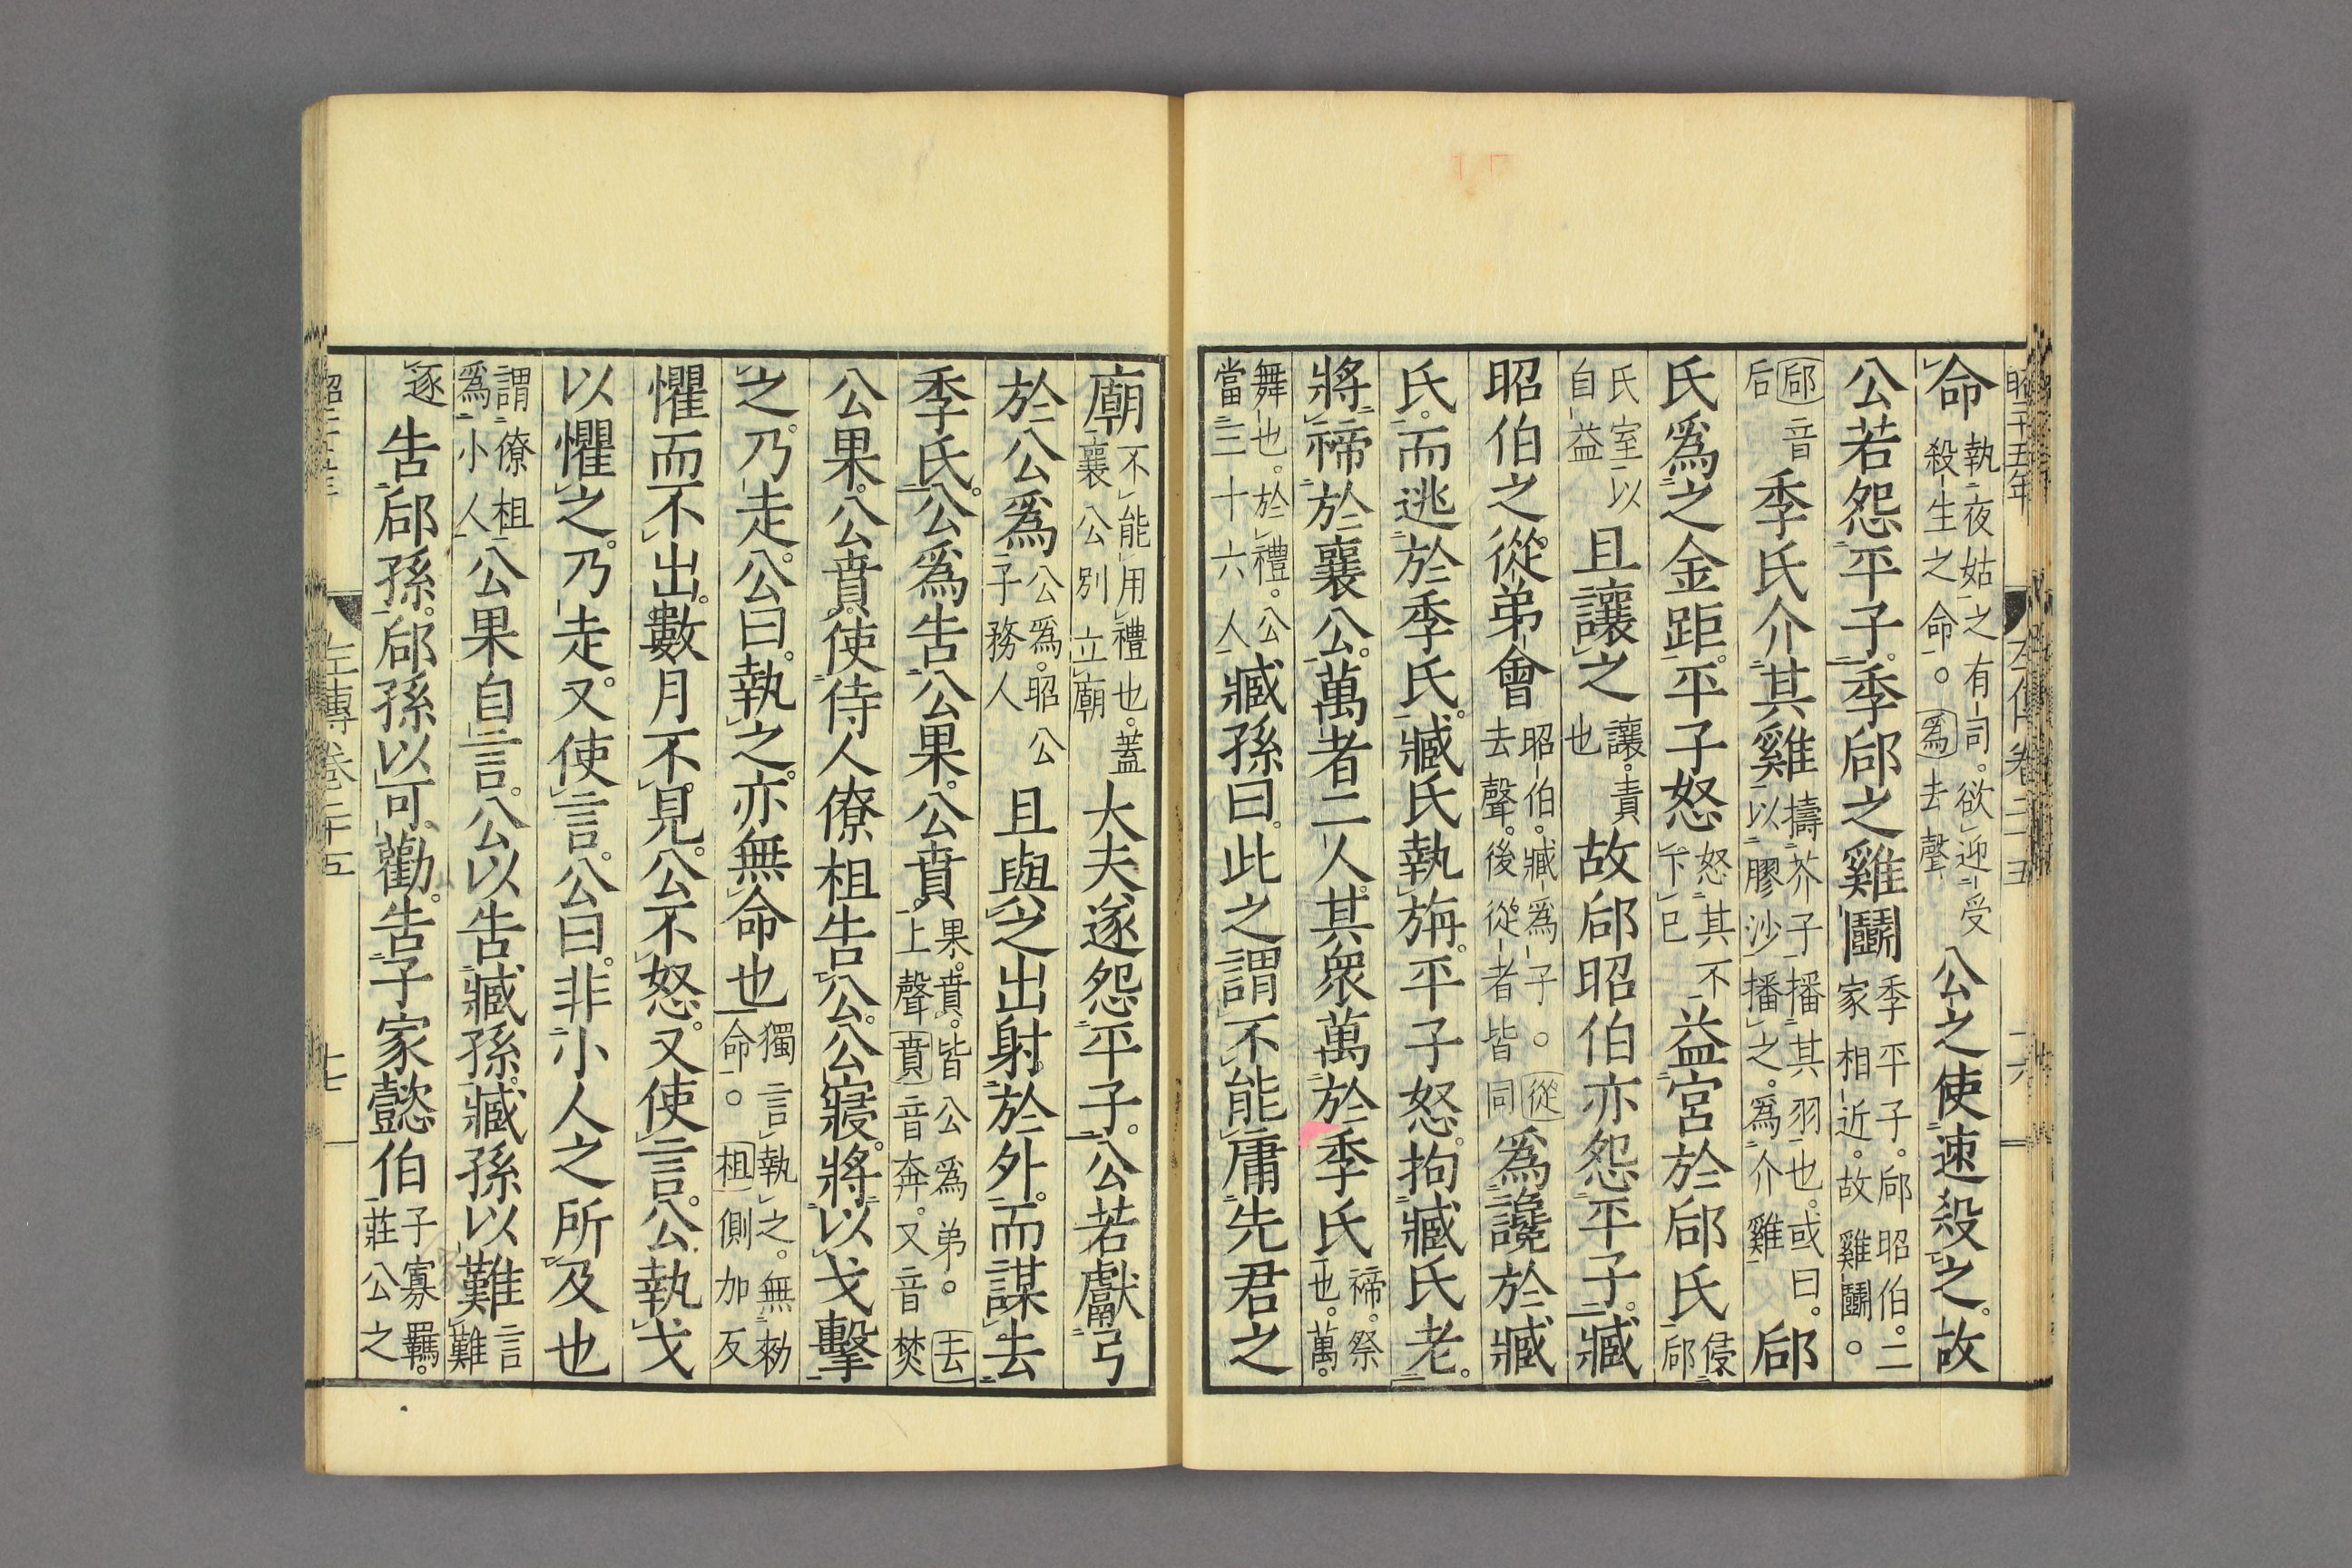 昭二十五年 左傳卷二十五 十六
命執夜姑之有司。欲迎受殺生之命。○爲去聲公之使速殺之。故
公若怨平子。季郈之雞鬭季平子。郈昭伯。二家相近。故雞鬭。○
郈音后季氏介其雞擣芥子播其羽也。或曰。以膠沙播之。爲介雞郈
氏爲之金距。平子怒怒其不下己益宮於郈氏侵郈
氏室以自益且讓之讓。責也故郈昭伯亦怨平子。臧
昭伯之從弟會昭伯。臧爲子。○從去聲。後從者皆同爲讒於臧
氏。而逃於季氏。臧氏執旃。平子怒。拘臧氏老。
將禘於襄公。萬者二人。其衆萬於季氏禘。祭也。萬。
舞也。於禮。公當三十六人臧孫曰。此之謂不能庸先君之
廟不能用禮也。蓋襄公別立廟大夫遂怨平子。公若獻弓
於公爲公爲。昭公子務人且與之出射於外。而謀去
季氏。公爲告公果。公賁果。賁。皆公爲弟。去上聲賁音奔。又音焚
公果。公賁。使侍人僚柤告公。公寢。將以戈擊
之。乃走。公曰。執之。亦無命也獨言執之。無勑命。○柤側加反
懼而不出。數月不見。公不怒。又使言。公執戈
以懼之。乃走。又使言。公曰。非小人之所及也
謂僚柤爲小人公果自言。公以告臧孫。臧孫以難言難
逐告郈孫。郈孫以可勸。告子家懿伯子家羈。莊公之
左傳卷二十五